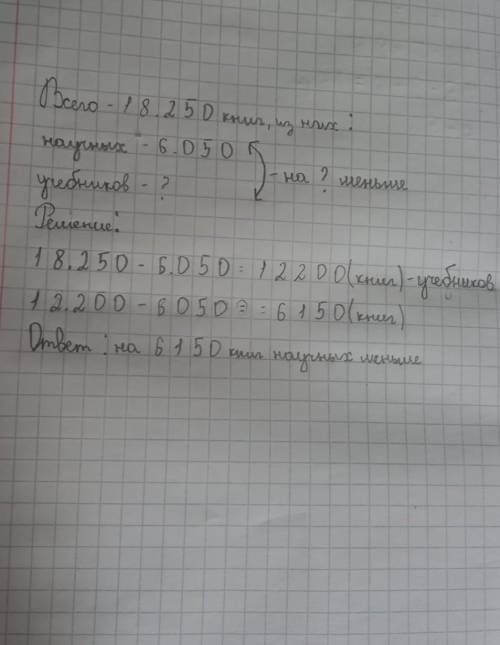 Всего - 18.250 книг, из них:
научных - 6.050
учебников - ?
- на ? меньше
Решение:
18.250 - 6.050 = 12200 (книг) - учебников
12.200 - 6050 = = 6150 (книг)
Ответ: на 6150 книг научных меньше